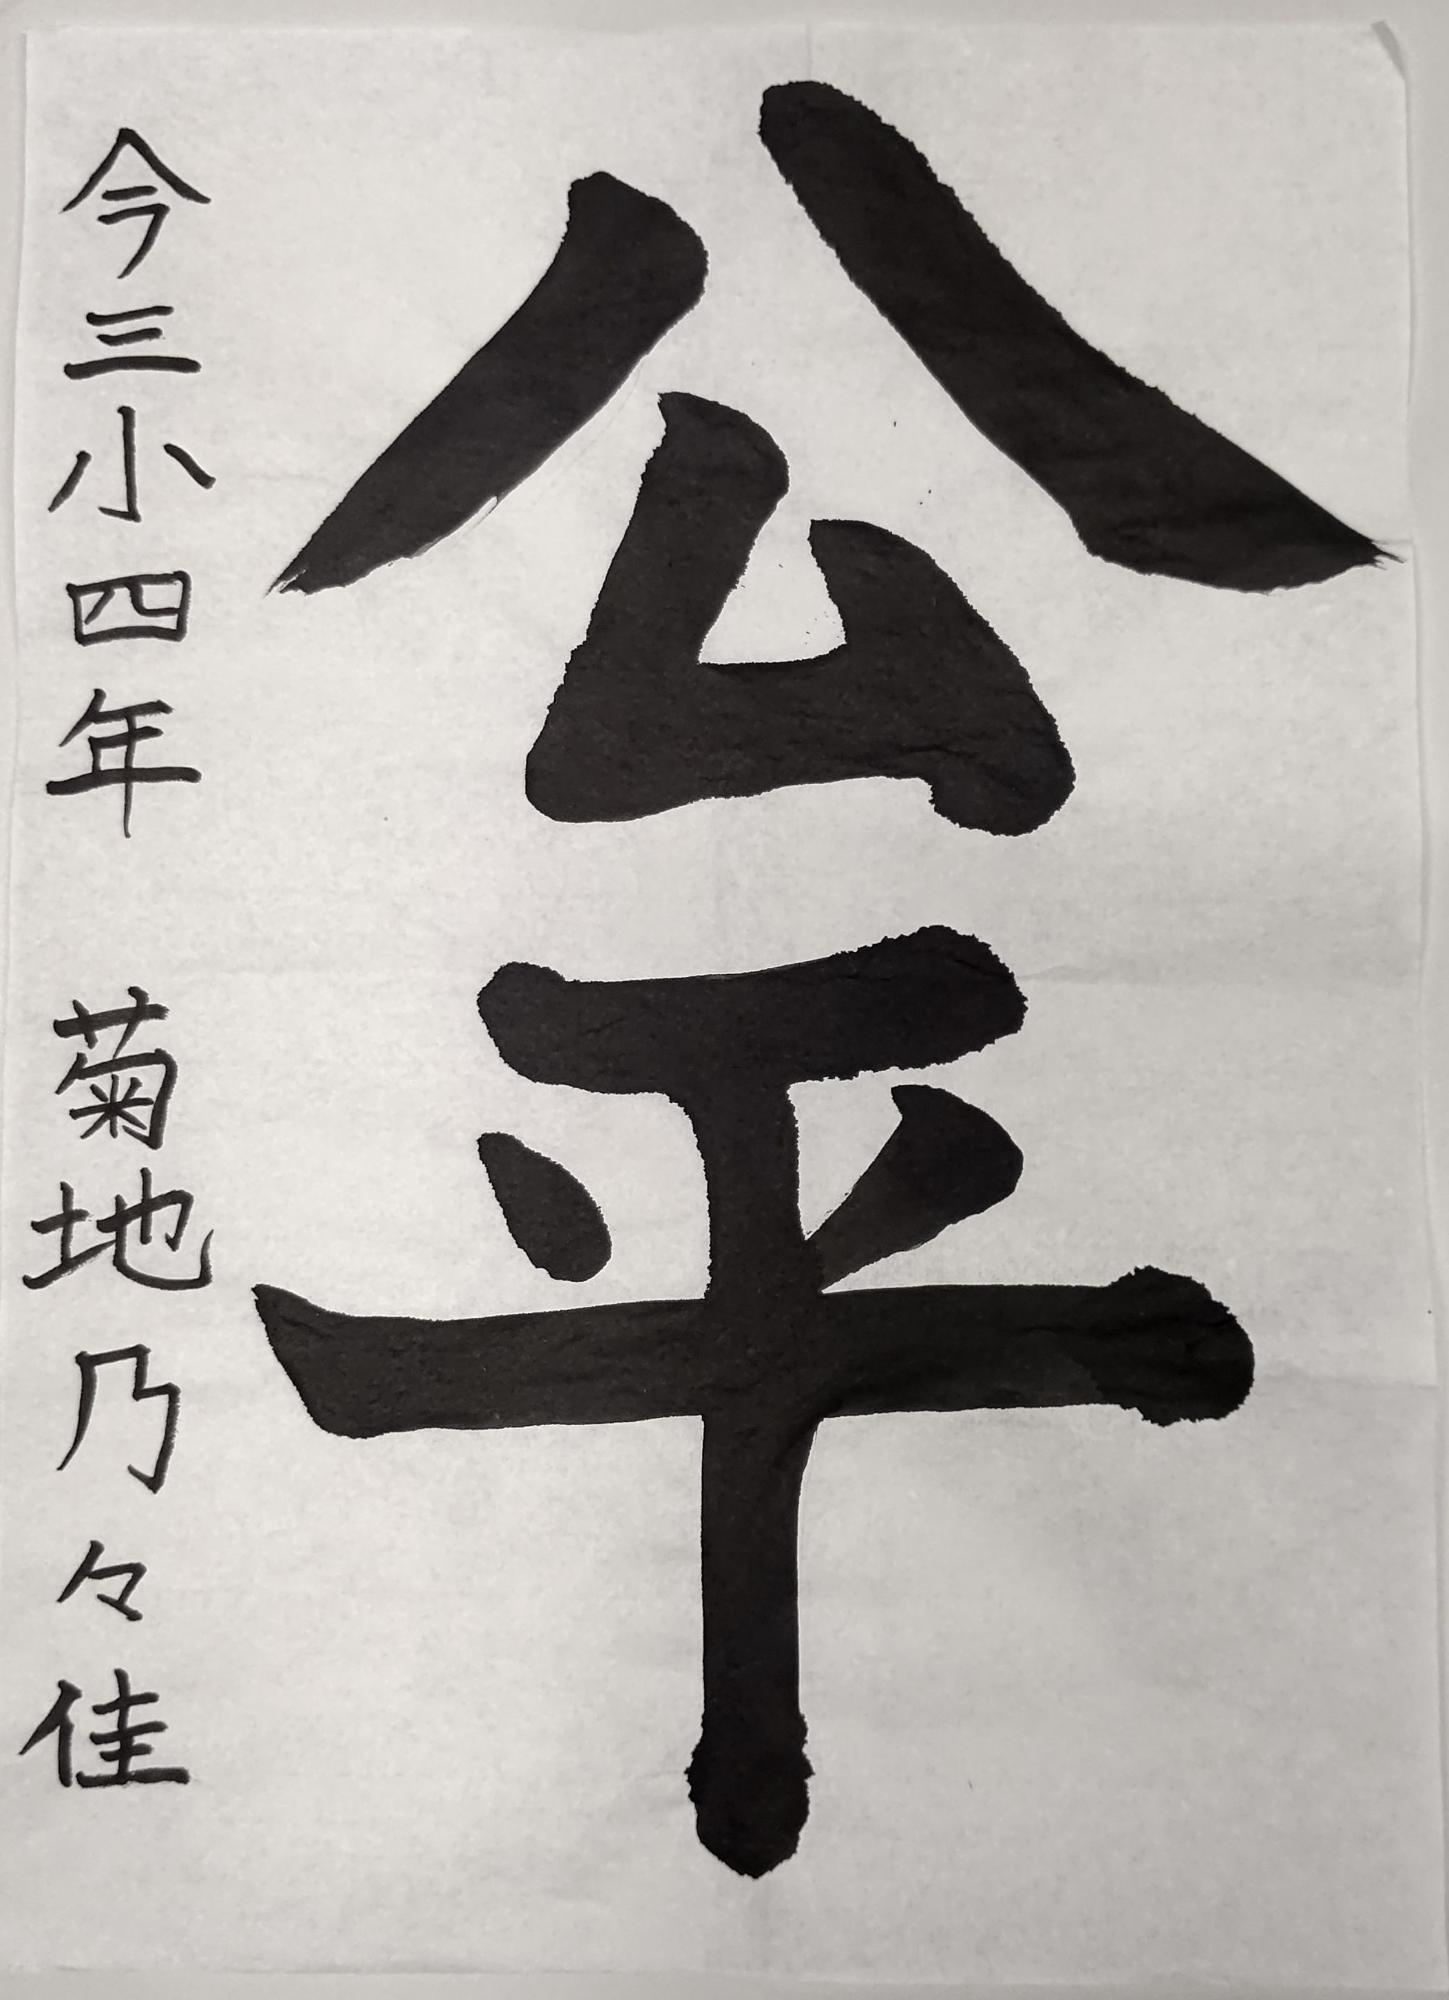 公平
今三小四年 菊地乃々佳